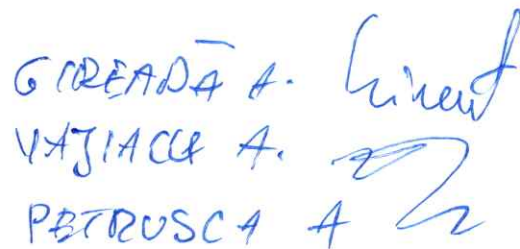 GIREADĂ A.
VAJIACU A.
PETRUSCA A